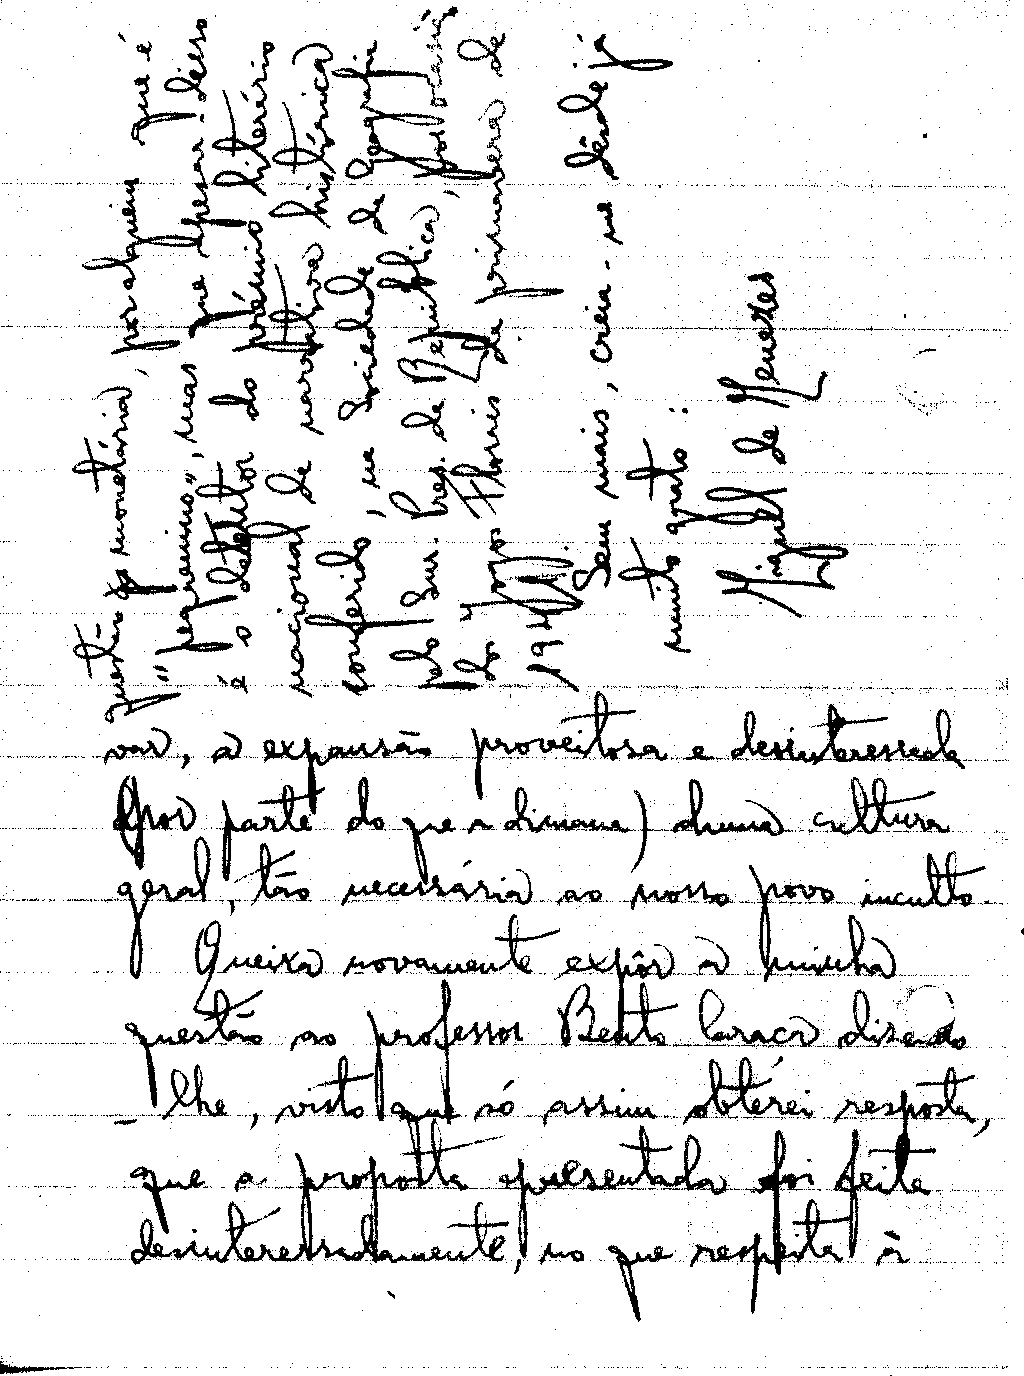 var, a expansão proveitosa e desinteressada
(por parte do que a dimana) duma cultura
geral, tão necessária ao nosso povo inculto.
Queira novamente expôr a minha
questão ao professor Bento Caraça dizendo
-lhe, visto que só assim obterei resposta,
que a proposta apresentada foi feita
desinteressadamente, no que respeita à
questão monetária, por alguém que é
"pequenino", mas que apesar disso
é o detentor do prémio literário
nacional de narrativa histórica
conferido, na Sociedade de Geografia
pelo Snr. Pres. da República, por ocasião
dos Jogos Florais da primavera de
194
Sem mais, creia-me dêsde já
muito grato:
Miguel de Menezes